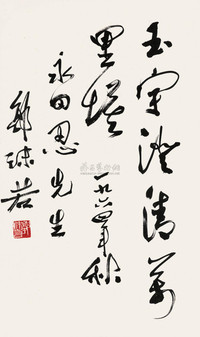 玉宇澄清萬
里埃
一九六四年秋
永田思先生
郭沫若